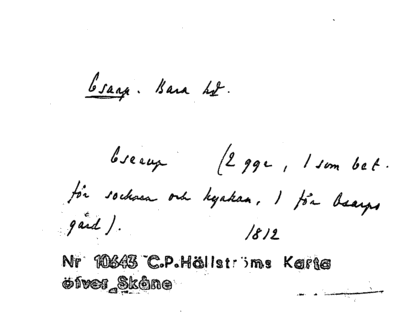 Esarp. Bara hd.
Eserup (2 ggr, 1 som bet.
för socknen och kyrkan, 1 för Esarps
gård). 1812
Nr 10643 C.P.Hällströms Karta
öfver Skåne